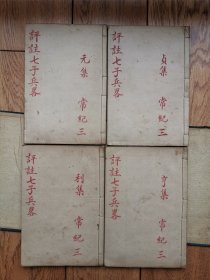 評註七子兵畧
元集 常紀三
評註七子兵畧
貞集 常紀三
評註七子兵畧
利集 常紀三
評註七子兵畧
亨集 常紀三